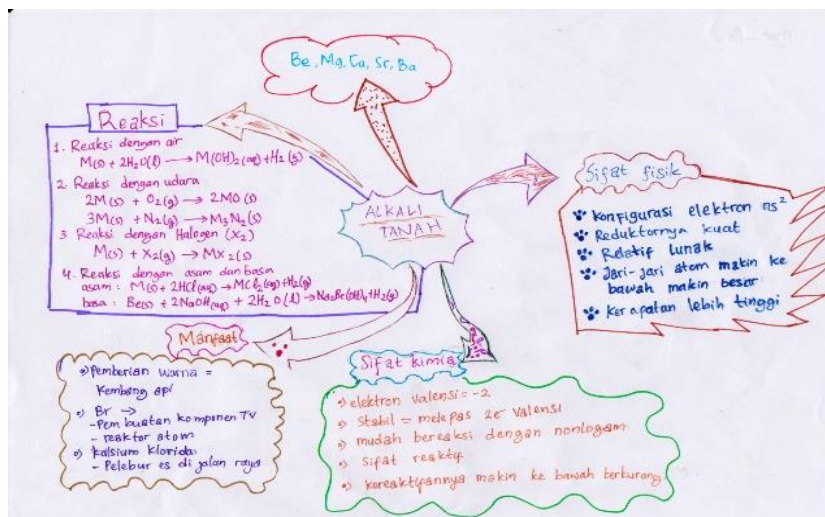 Be, Mg, Ca, Sr, Ba
Reaksi
1. Reaksi dengan air
M(s) + 2H2O(l) → M(OH)2(aq) + H2(g)
2. Reaksi dengan udara
2M(s) + O2(g) → 2MO(s)
3M(s) + N2(g) → M3N2(s)
3 Reaksi dengan Halogen (X2)
M(s) + X2(g) → MX2(s)
4. Reaksi dengan asam dan basa
asam : M(s) + 2HCl(aq) → MCl2(aq) + H2(g)
basa : Be(s) + 2NaOH(aq) + 2H2O(l) → Na2Be(OH)4 + H2(g)
ALKALI
TANAH
Sifat fisik
Konfigurasi elektron ns2
Reduktornya kuat
Relatif lunak
Jari-jari atom makin ke
bawah makin besar
Kerapatan lebih tinggi
Manfaat
Pemberian warna =
Kembang api
Br →
- Pembuatan komponen TV
- reaktor atom
Kalsium klorida
- Pelebur es di jalan raya
Sifat kimia
elektron valensi = -2
Stabil = melepas 2e- valensi
mudah bereaksi dengan nonlogam
Sifat reaktif
kereaktifannya makin ke bawah berkurang